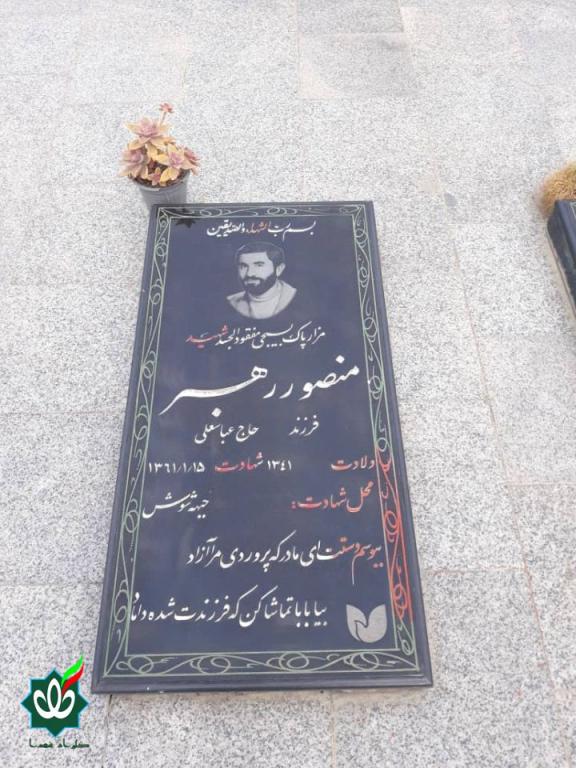 بسم رب الشهداء والصدیقین
مزار پاک بسیجی مفقود الجسد شهید
منصور رهبر
فرزند حاج عباسعلی
ولادت ۱۳۴۱ شهادت: ۱۳۶۱/۱/۱۵
محل شهادت: جبهه شوش
ببوسم دستت ای مادر که پروردی مرا آزاد
بیا بابا تماشا کن که فرزندت شده داماد